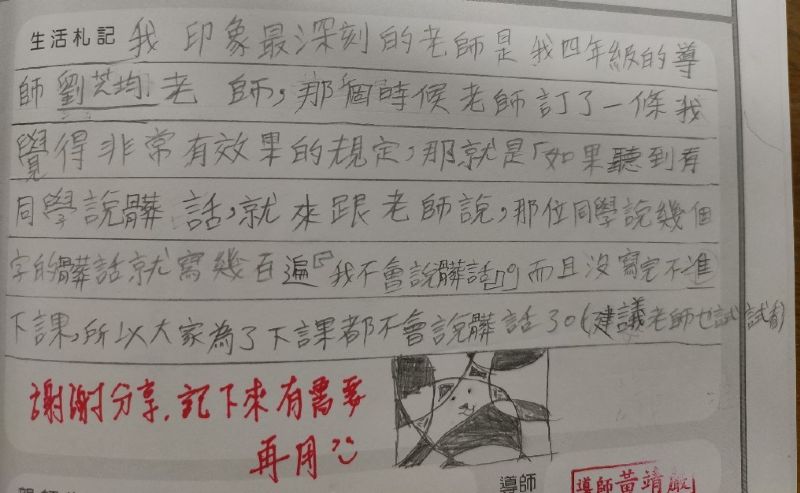 生活札記 我印象最深刻的老師是我四年級的導
師劉芝均老師,那個時候老師訂了一條我
覺得非常有效果的規定,那就是「如果聽到有
同學說髒話,就來跟老師說,那位同學說幾個
字的髒話就寫幾百遍『我不會說髒話』」。而且沒寫完不准
下課,所以大家為了下課都不會說髒話了。(建議老師也試試看)
謝謝分享,記下來有需要
再用
導師
導師黃靖